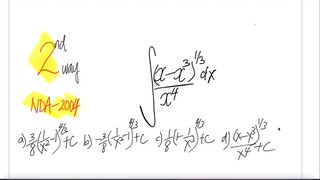 2nd way
NDA-2004
∫ (x-x³)^{1/3}/x⁴ dx
a) 3/8(1/x²-1)^{4/3}+C b) -3/8(1/x²-1)^{4/3}+C c) 1/8(1-1/x²)^{4/3}+C d) (x-x³)^{1/3}/x⁴+C